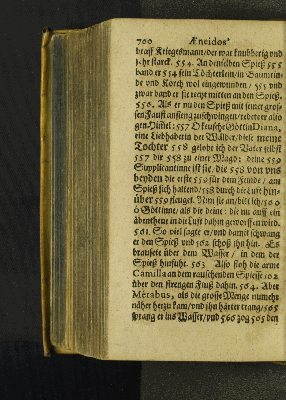 700 Æneidos
brauſt Kriegsmann/der war knubberig und
ſehr ſtarck. 554. An denſelben Spieß 555
band er 554 ſein Töchterlein/in Baumrin-
de und Korck wol eingewunden / 555 und
zwar band er ſie recht mitten an den Spieß.
556. Als er nu den Spieß mit ſeiner groſ-
ſen Fauſt anfieng zu ſchwingen/redet er alſo
gen Himmel: 557 O keuſche Göttin Diana,
eine Liebhaberin der Wälder/dieſe meine
Tochter 558 gelobe ich der Vater ſelbſt
557 dir 558 zu einer Magd: deine 559
Supplicantinne iſt ſie, die 558 von uns
beyden die erſte 559 für dem Feinde / am
Spieß ſich haltend/558 durch die Lufft hin-
über 559 fleuget. Nim ſie an/bitt ich/560
ô Göttinne/ als die deine: die nu auff ein
ebentheur in die Lufft dahin geworffen wird.
561. So viel ſagte er/und damit ſchwang
er den Spieß und 562 ſchoß ihn hin. Es
brauſete über dem Waſſer / in dem der
Spieß hinfuhr. 563 Alſo floh die arme
Camilla an dem rauſchenden Spieſſe 562
über den ſtrengen Fluß dahin. 564. Aber
Metabus, als die groſſe Menge nunmehr
näher herzu kam/und ihn härter trang/565
ſprang er ins Waſſer/und 566 zog 565 den